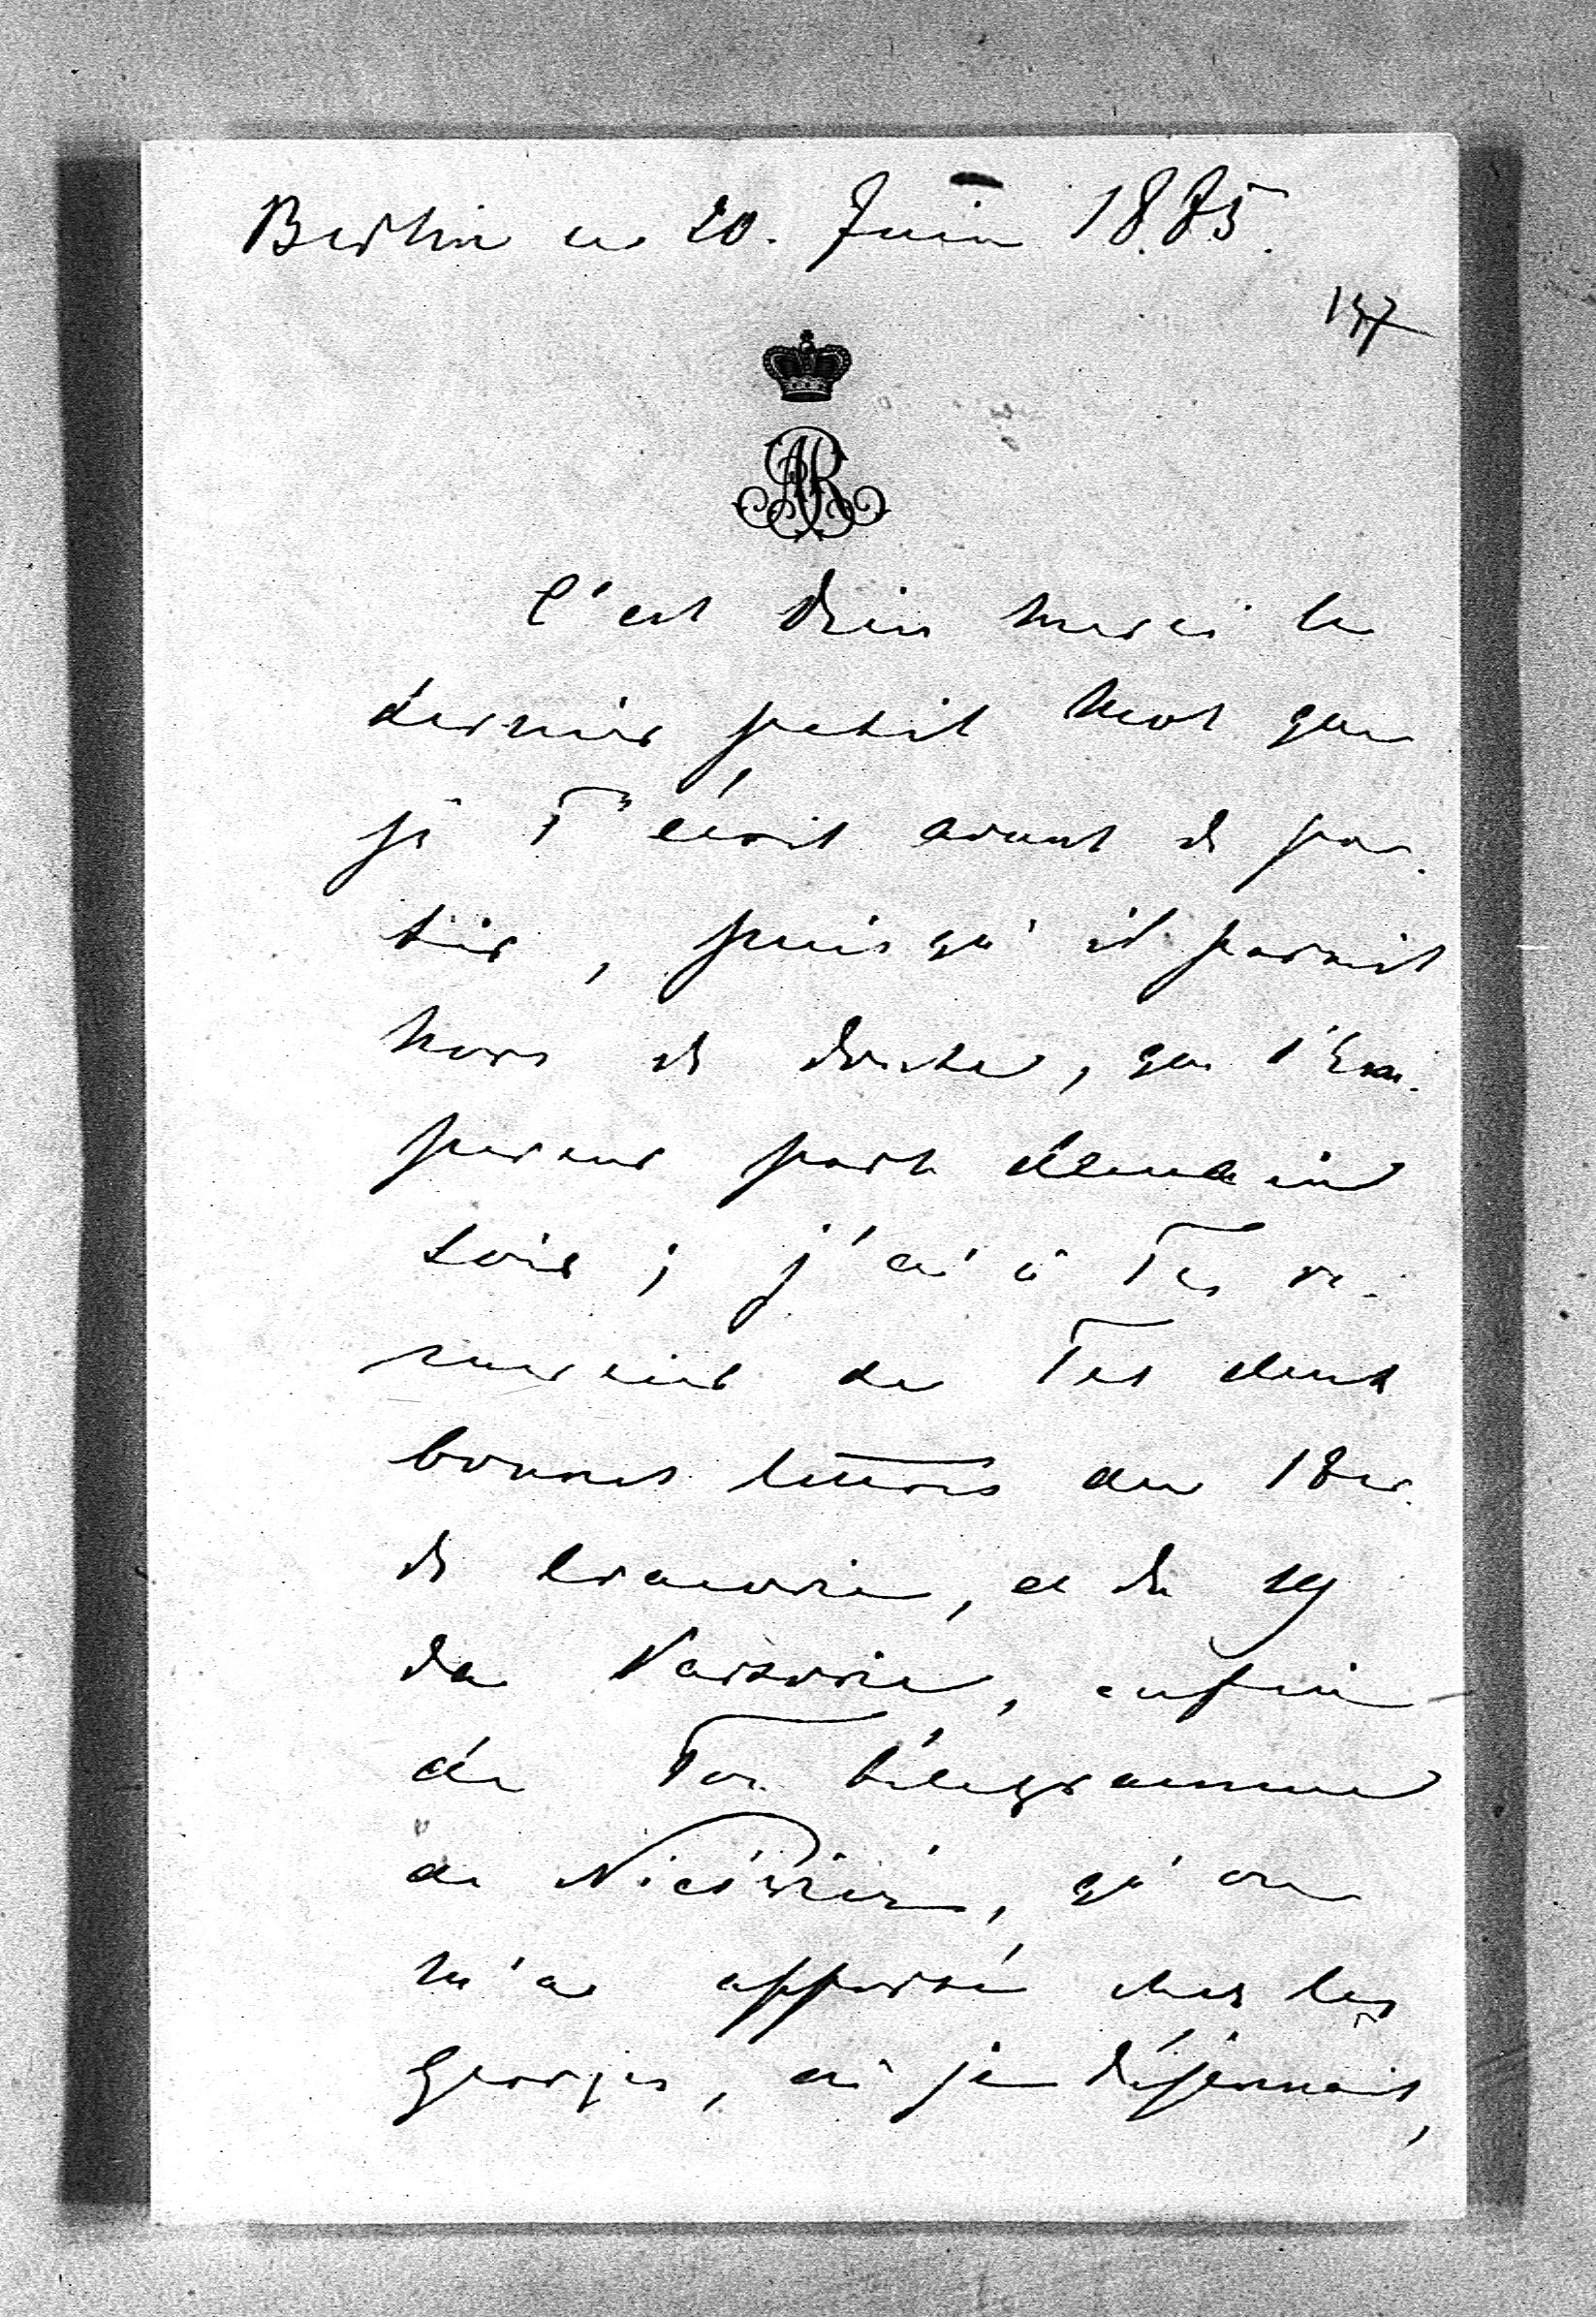 Berlin ce 20. Juin 1885.
147
AR
C'est Dieu merci le
dernier petit mot que
je T'écrit avant de par-
tir, puisqu'il parait
hors de doute, que l'Em-
pereur part demain
soir; j'ai à Te re-
mercier de Tes deux
bonnes lettres du 18
de Cracovie, et du 19
de Varsovie, enfin
de Ton télégramme
de Nieświeź, qu'on
m'a apporté chez les
Georges, où je déjeunais,